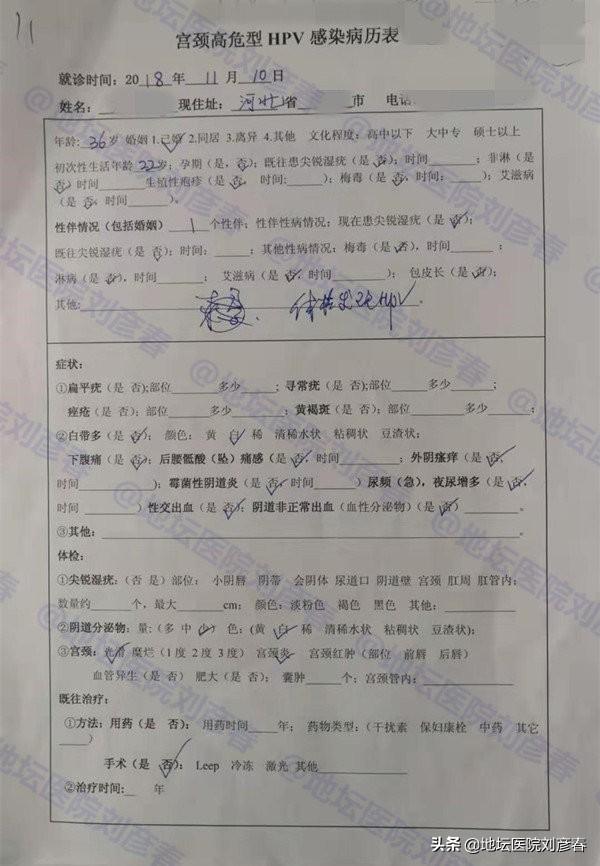 11
宫颈高危型 HPV 感染病历表
就诊时间：2018年 11月 10日
姓名： 现住址：河北省 市 电话
年龄：36岁 婚姻 1.已婚 2.同居 3.离异 4.其他 文化程度：高中以下 大中专 硕士以上
初次性生活年龄 22岁；孕期（是，否）；既往患尖锐湿疣（是 否）；时间；非淋（是
否）时间 生殖性疱疹（是 否， 时间： ）；梅毒（是 否，时间： ）；艾滋病
（是 否，时间 ）。
性伴情况（包括婚姻） 1 个性伴；性伴性病情况：现在患尖锐湿疣（是 否）；
既往尖锐湿疣（是 否）；时间： ；其他性病情况：梅毒（是 否），时间 ；
淋病（是 否），时间 ； 艾滋病（是 否，时间 ）； 包皮长（是 否）；
其他： HPV
症状：
①扁平疣（是 否）;部位 多少 ；寻常疣（是 否）;部位 多少 ；
痤疮（是 否）：部位 多少 ；黄褐斑（是 否）：部位 多少 ；
②白带多（是 否）； 颜色： 黄 白 稀 清稀水状 粘稠状 豆渣状；
下腹痛（是 否）；后腰骶酸（坠）痛感（是 否，时间 ）；外阴瘙痒（是 否，
时间 ）；霉菌性阴道炎（是 否，时间 ）尿频（急），夜尿增多（是 否，
时间 ）性交出血（是 否）；阴道非正常出血（血性分泌物）（是 否） 。
③其他： 。
体检：
①尖锐湿疣：（否 是）部位： 小阴唇 阴蒂 会阴体 尿道口 阴道壁 宫颈 肛周 肛管内；
数量约 个，最大 cm； 颜色：淡粉色 褐色 黑色 其他：
②阴道分泌物：量：（多 中 少） 色：（黄 白 稀 清稀水状 粘稠状 豆渣状）；
③宫颈：光滑 糜烂（1度 2度 3度） 宫颈炎 宫颈红肿（部位 前唇 后唇）
血管异生（是 否） 肥大（是 否）； 囊肿 个；宫颈管内：
既往治疗：
①方法：用药（是 否）： 用药时间 年； 药物类型：（干扰素 保妇康栓 中药 其它
）
手术（是 否）： Leep 冷冻 激光 其他
②治疗时间： 年
@地坛医院刘彦春
头条 @地坛医院刘彦春